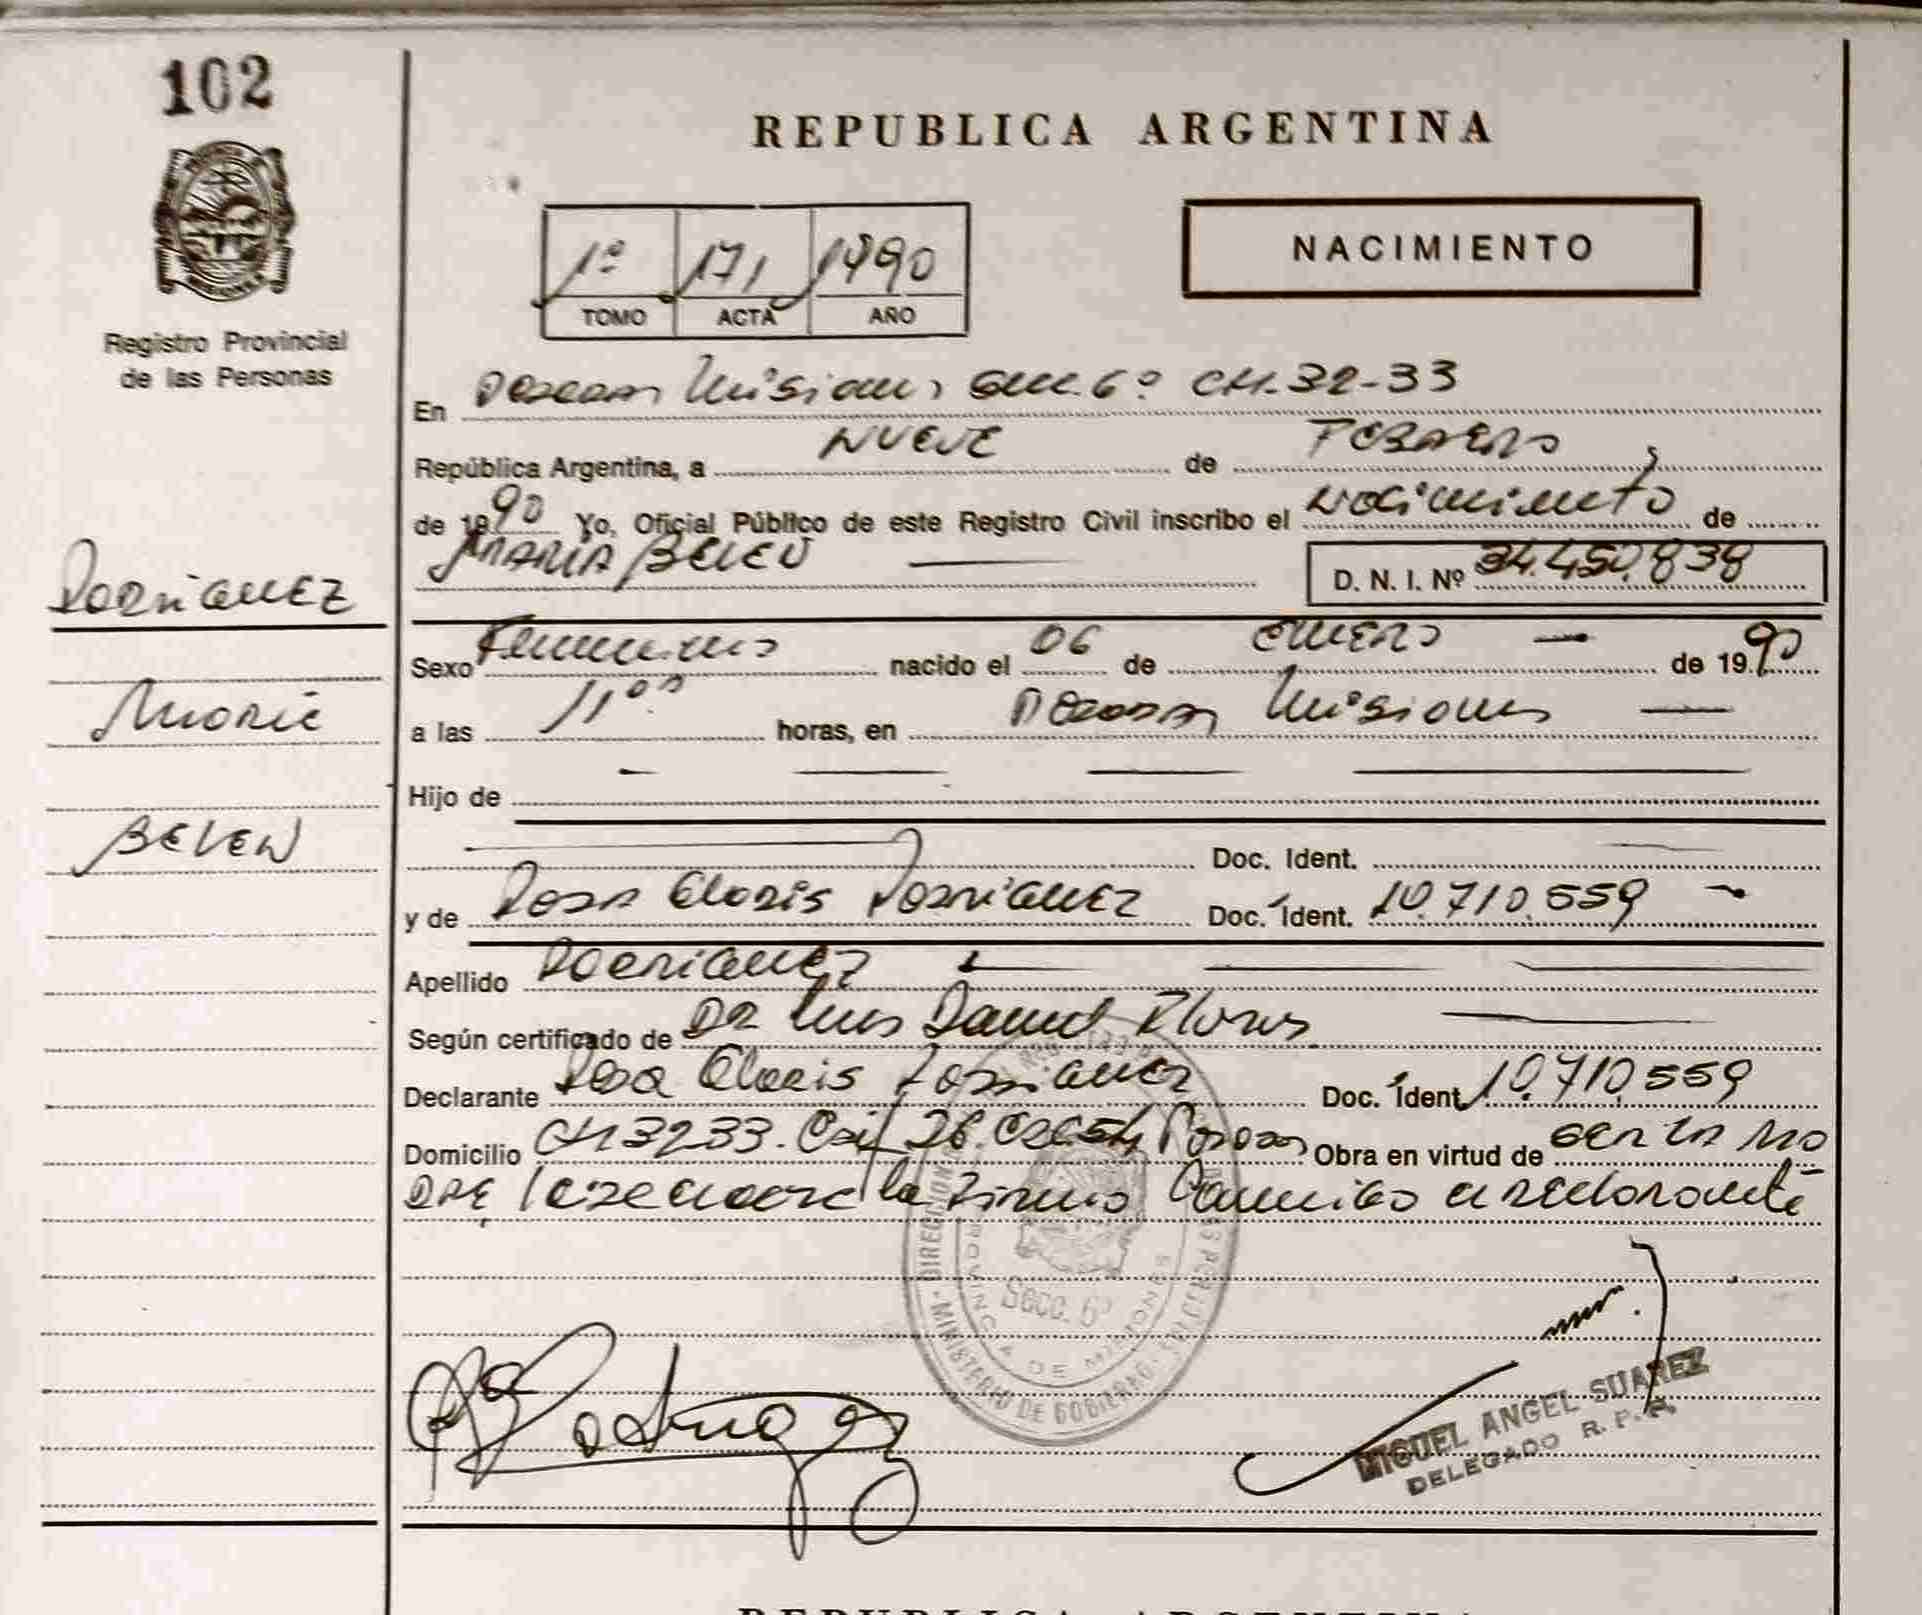 102
REPUBLICA ARGENTINA
NACIMIENTO
1º 171 1990
TOMO ACTA AÑO
Registro Provincial
de las Personas
En Posadas Misiones Secc. 6º CH. 32-33
República Argentina, a NUEVE de FEBRERO
de 1990 Yo, Oficial Público de este Registro Civil inscribo el nacimiento de
MARIA BELEN D. N. I. Nº 34.450.838
RODRIGUEZ
Sexo Femenino nacido el 06 de ENERO de 1990
Maria
a las 11º horas, en Posadas Misiones
Hijo de
BELEN
Doc. Ident.
y de Rosa Gloris Rodriguez Doc. Ident. 10.710.559
Apellido Rodriguez
Según certificado de DR Luis Daniel Flores
Declarante Rosa Gloris Rodriguez Doc. Ident 10.710.559
Domicilio CH 32 33. 26. Posadas Obra en virtud de SER LA MA
DRE la firma conmigo declarante
DIRECCION
MINISTERIO DE GOBIERNO
PROVINCIA DE MISIONES
Secc. 6º
MIGUEL ANGEL SUAREZ
DELEGADO R. P. P.
REPUBLICA ARGENTINA